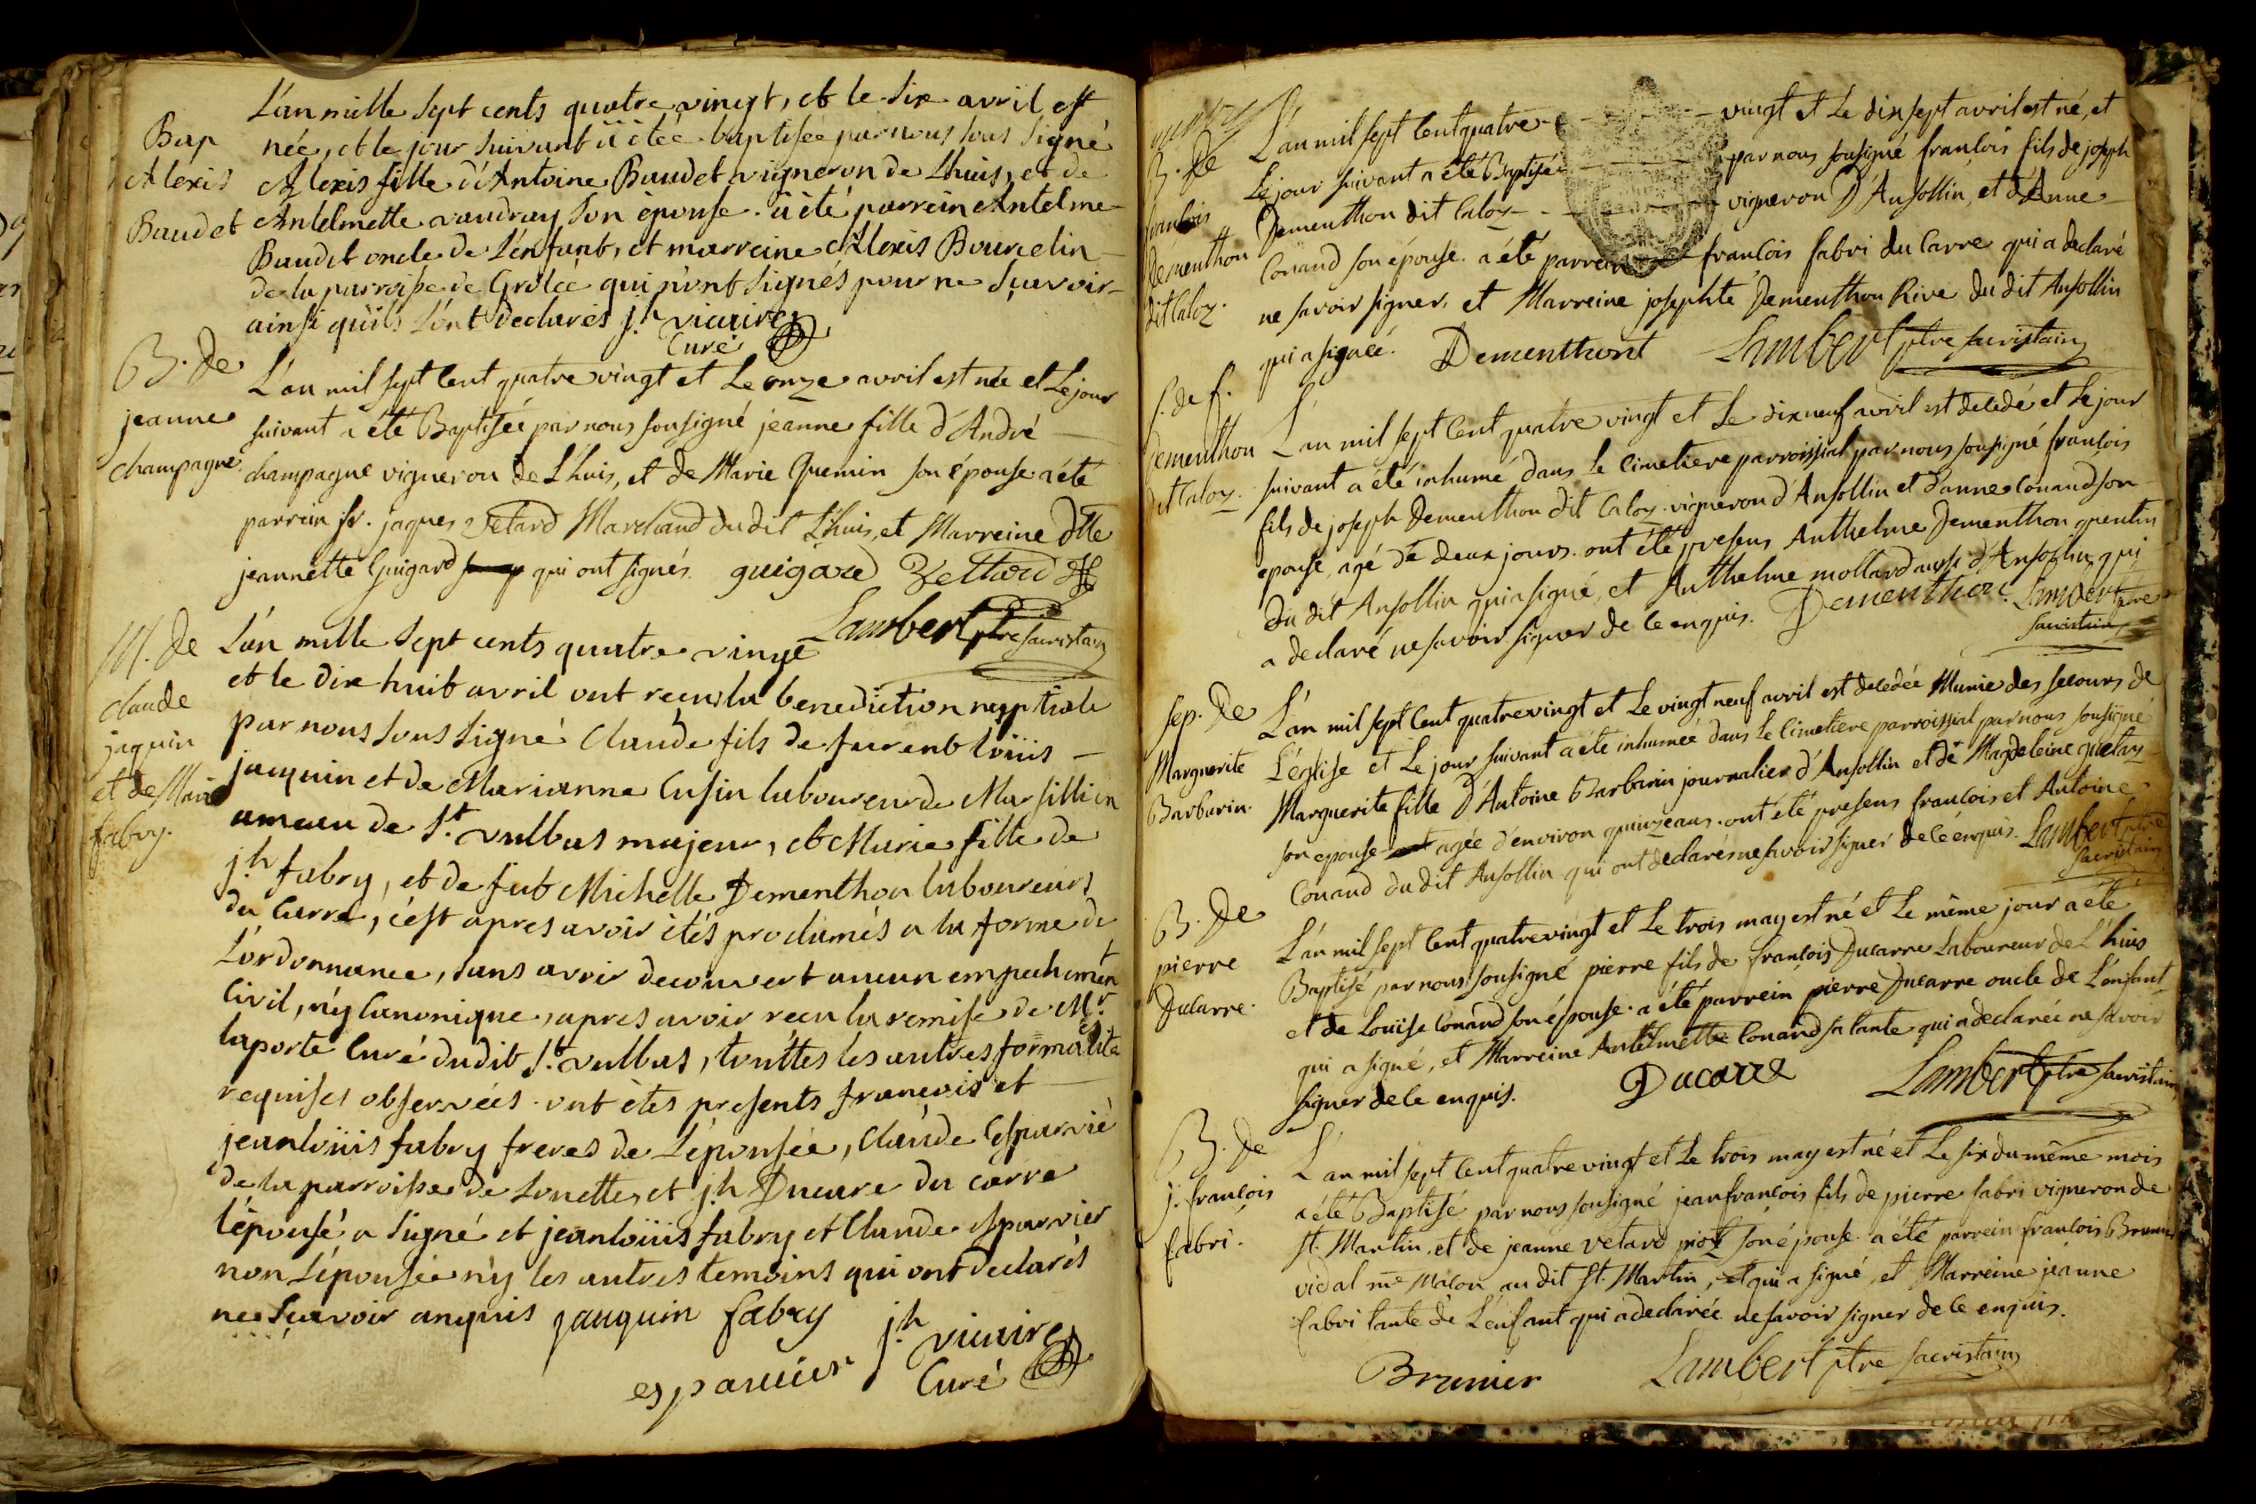 Bap
Alexis
Baudet
L'an mille sept cents quatre vingt, et le six avril est
née, et le jour suivant à étée baptisée par nous sous signé
Alexis fille d'Antoine Baudet vigneron de Lhuis, et de
Antelmette vaudray son épouse. à été parrein Antelme
Baudet oncle de L'enfant, et marreine Alexis Bourcelin
de la parroisse de Grolée qui n'ont signés pour ne sçavoir
ainsi qu'ils l'ont declarés j.h vicaire
Curé
B. de
jeanne
champagne
L'an mil sept cent quatre vingt et Le onze avril est née et Le jour
suivant a été Baptisée par nous sousigné jeanne fille d'André
champagne vigneron de L'huis, et de Marie Quemin son épouse a été
parrein sr. jaques Vetard Marchand du dit L'huis, et Marreine dlle
jeannette Guigard qui ont signés. guigard Vettard
Lambert ptre sacristain
M. de
claude
jaquin
et de Marie
fabry.
L'an mille sept cents quatre vingt
et le dix huit avril ont recu la benediction nuptiale
par nous sous signé Claude fils de feu enb loüis
jacquin et de Marianne Cusin laboureur de Marsillien
ameau de St. vulbas majeur, et Marie fille de
j.h fabry, et de fut Michelle Dementhon laboureurs
du Carre, c'est apres avoir étés proclamés a la forme de
L'ordonnance, sans avoir decouvert aucun empechement
Civil, n'y Canonique, apres avoir recu la remise de Mr.
laporte Curé dudit St. vulbas, touttes les autres formalités
requises observées. ont étés presents francois et
jeanloüis fabry freres de L'épousée, Claude Esparvié
de la parroisse de Lonettes, et j.h Ducare du carre
l'épousé a signé et jeanloüis fabry et Claude esparvier
non L'épousée n'y les autres temoins qui ont declarés
ne sçavoir anquis jauquin fabry j.h vicaire
esparvier Curé
B. de
francois
Dementhon
dit Caloz.
L'an mil sept Cent quatre vingt et Le dix sept avril est né, et
Le jour suivant a été Baptisé par nous sousigné francois fils de joseph
Dementhon dit Caloz vigneron D'Ansollin, et d'Anne
Conand son épouse. a été parrein francois fabri du Carre qui a declaré
ne savoir signer, et Marreine josephte Dementhon Rive du dit Ansollin
qui a signée. Dementhont Lambert ptre sacristain
s. de f.
Dementhon
dit Caloz.
L'an mil sept Cent quatre vingt et Le dix neuf avril est decedé et Le jour
suivant a été inhumé dans Le Cimetiere parroissial par nous sousigné francois
fils de joseph Dementhon dit Caloz vigneron d'Ansollin et d'anne Conand son
epouse, agé de deux jours. ont été presens Anthelme Dementhon quentin
du dit Ansollin qui a signé, et Anthelme mollard aussi d'Ansollin qui
a declaré ne savoir signer de ce enquis. Dementhon Lambert ptre
sacristain
sep. de
Marguerite
Barbarin.
L'an mil sept Cent quatre vingt et Le vingt neuf avril est decedée Munie des secours de
L'église et Le jour suivant a été inhumée dans Le Cimetiere parroissial par nous sousigné
Marguerite fille D'Antoine Barbarin journalier d'Ansollin et de Magdeleine guetay
son epouse agée d'environ quinze ans. ont été presens francois et Antoine
Conand du dit Ansollin qui ont declarés ne savoir signer de ce enquis. Lambert ptre
sacristain
B. De
pierre
Ducarre.
L'an mil sept Cent quatre vingt et Le trois may est né et Le même jour a été
Baptisé par nous sousigné pierre fils de francois Ducarre Laboureur de L'huis
et de Louïse Conand son épouse. a été parrein pierre Ducarre oncle de L'enfant
qui a signé, et Marreine Antelmette Conand sa tante qui a declarée ne savoir
signer de ce enquis. Ducarre Lambert ptre sacristain
B. de
j. francois
fabri.
L'an mil sept Cent quatre vingt et Le trois may est né et Le six du même mois
a été Baptisé par nous sousigné jean francois fils de pierre fabri vigneron de
st. Martin, et de jeanne Vetard piot son épouse. a été parrein francois Brunier
vidal me Macon au dit St. Martin, et qui a signé, et Marreine jeanne
fabri tante de L'enfant qui a declarée ne savoir signer de ce enquis.
Brunier Lambert ptre sacristain